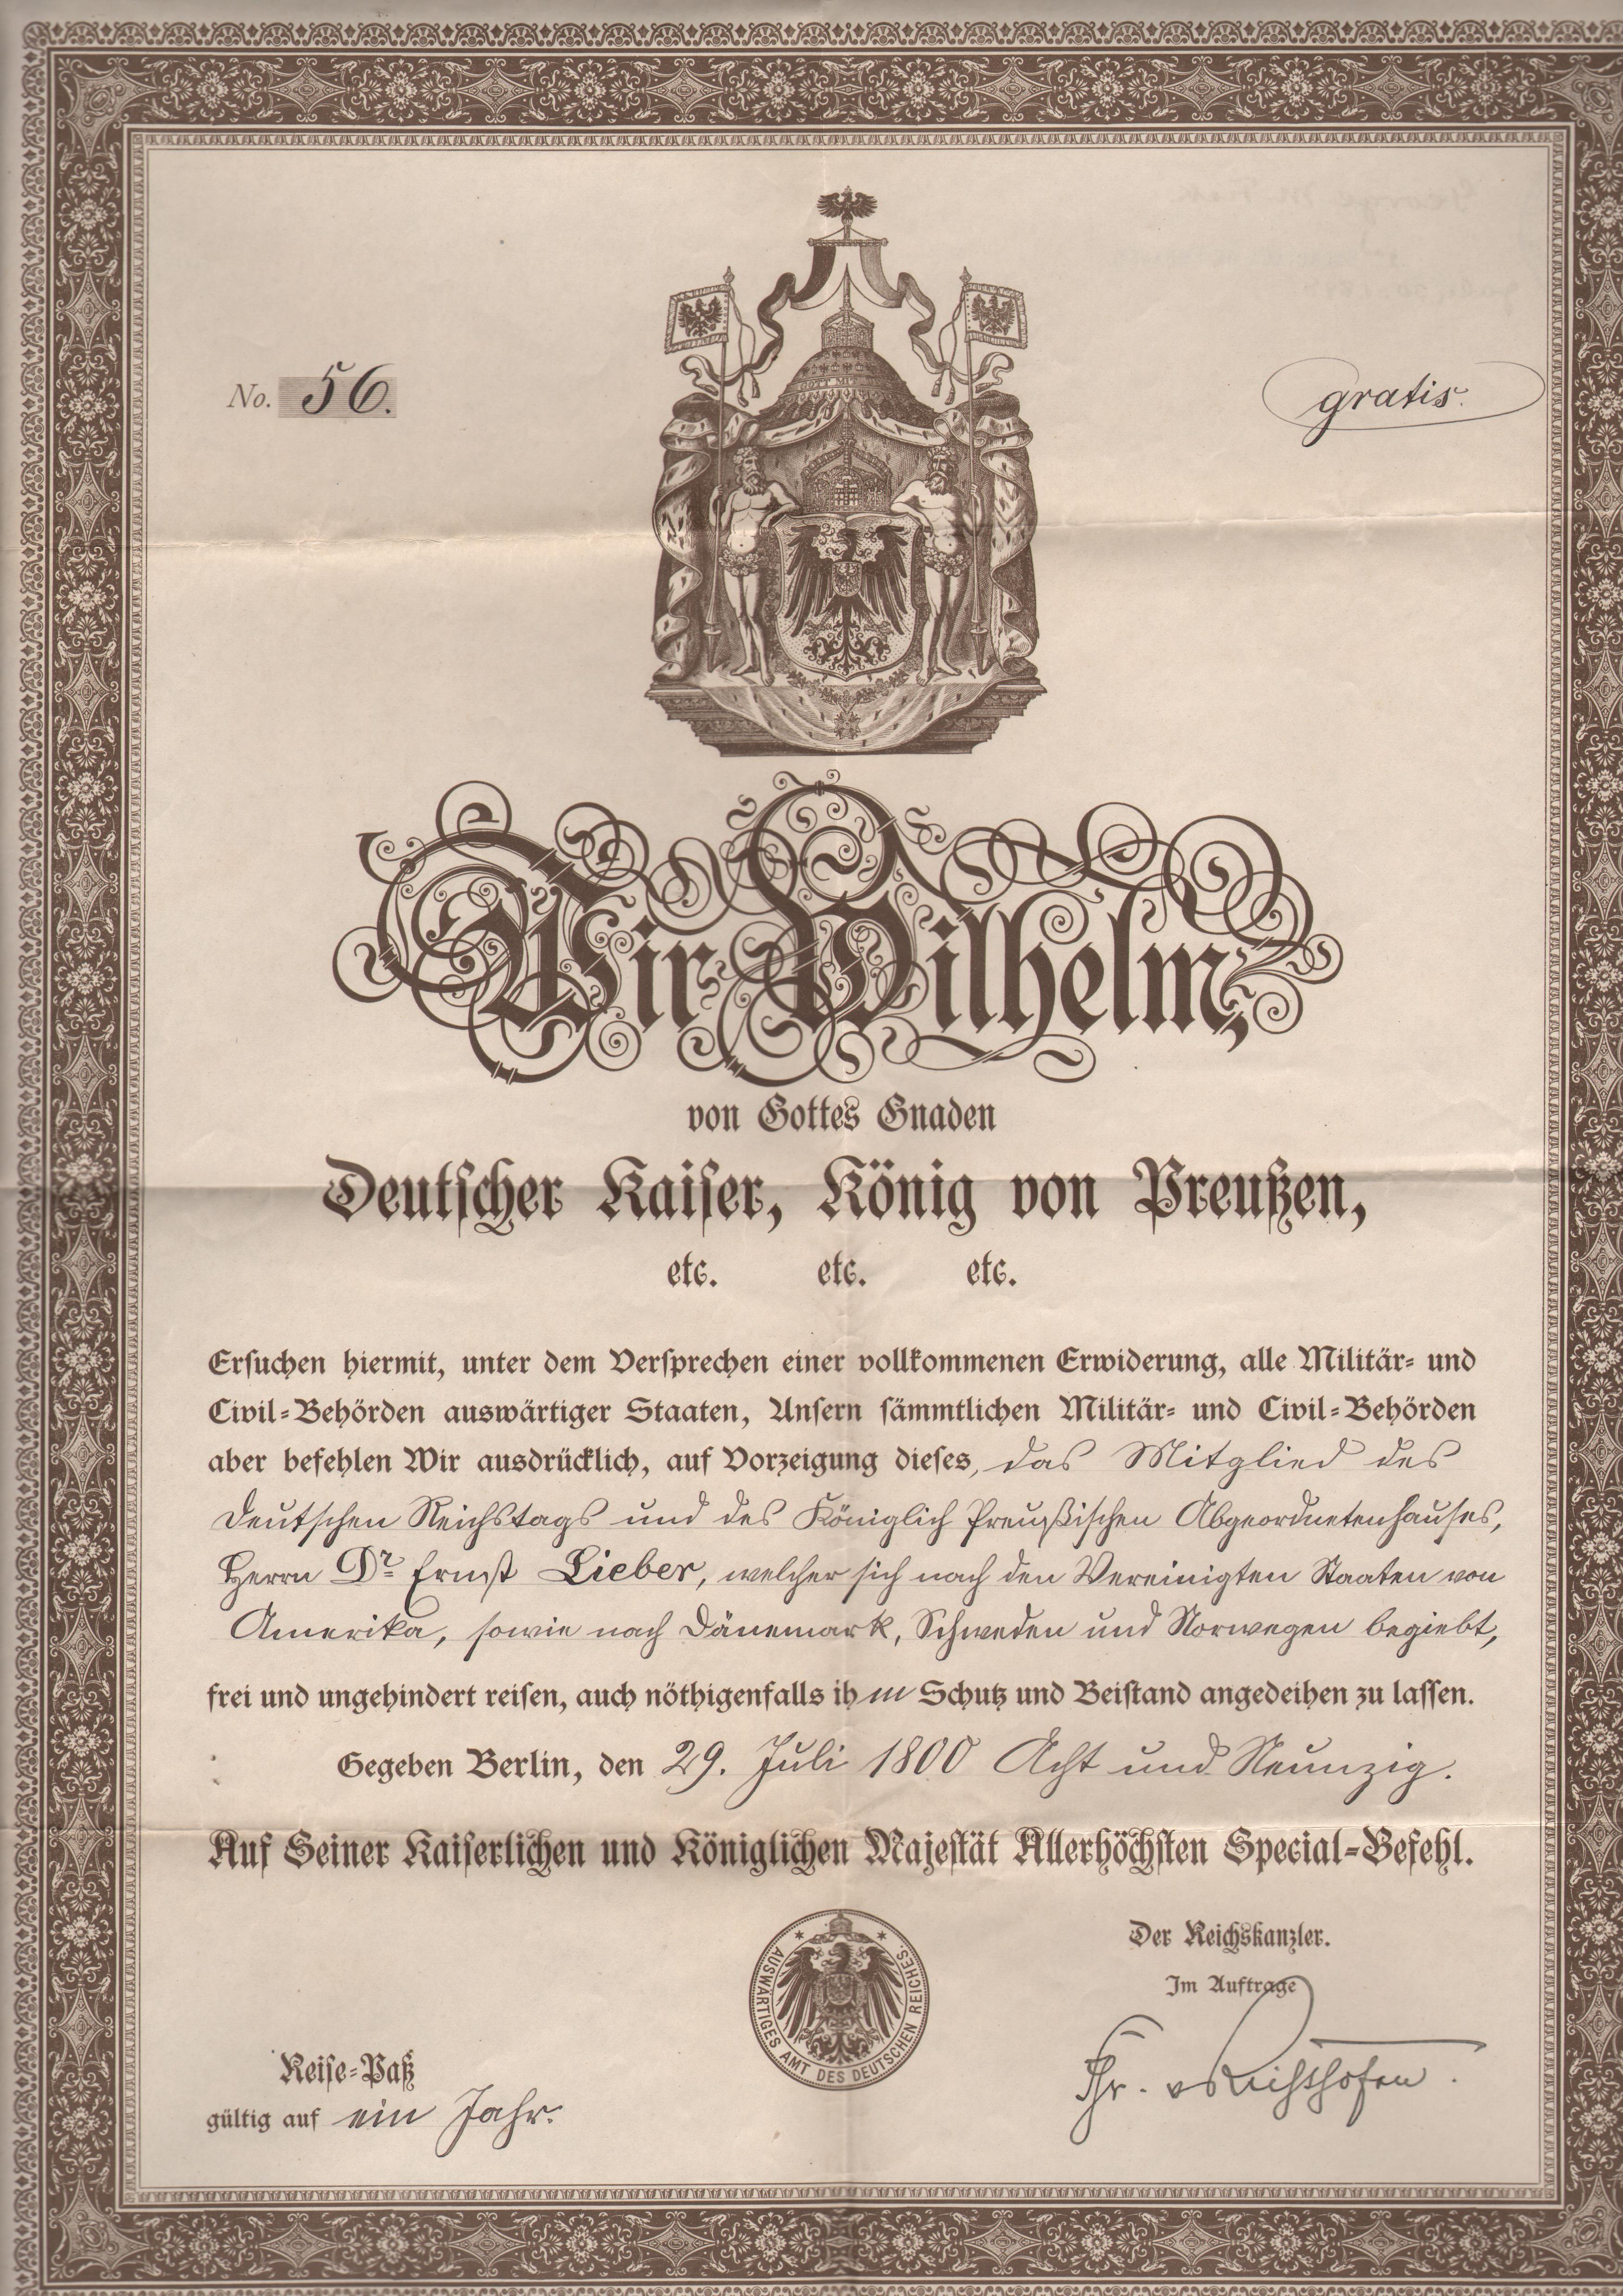 No. 56.
gratis.
GOTT MIT
Wir Wilhelm,
von Gottes Gnaden
Deutscher Kaiser, König von Preußen,
etc. etc. etc.
Ersuchen hiermit, unter dem Versprechen einer vollkommenen Erwiderung, alle Militär- und
Civil-Behörden auswärtiger Staaten, Unsern sämmtlichen Militär- und Civil-Behörden
aber befehlen Wir ausdrücklich, auf Vorzeigung dieses, das Mitglied des
Deutschen Reichstags und des Königlich Preußischen Abgeordnetenhauses,
Herrn Dr. Ernst Lieber, welcher sich nach den Vereinigten Staaten von
Amerika, sowie nach Dänemark, Schweden und Norwegen begiebt,
frei und ungehindert reisen, auch nöthigenfalls ihm Schutz und Beistand angedeihen zu lassen.
Gegeben Berlin, den 29. Juli 1800 Acht und Neunzig.
Auf Seiner Kaiserlichen und Königlichen Majestät Allerhöchsten Special-Befehl.
Der Reichskanzler.
Im Auftrage
Fhr. v Richthofen.
AUSWÄRTIGES AMT DES DEUTSCHEN REICHES.
Reise-Paß
gültig auf ein Jahr.